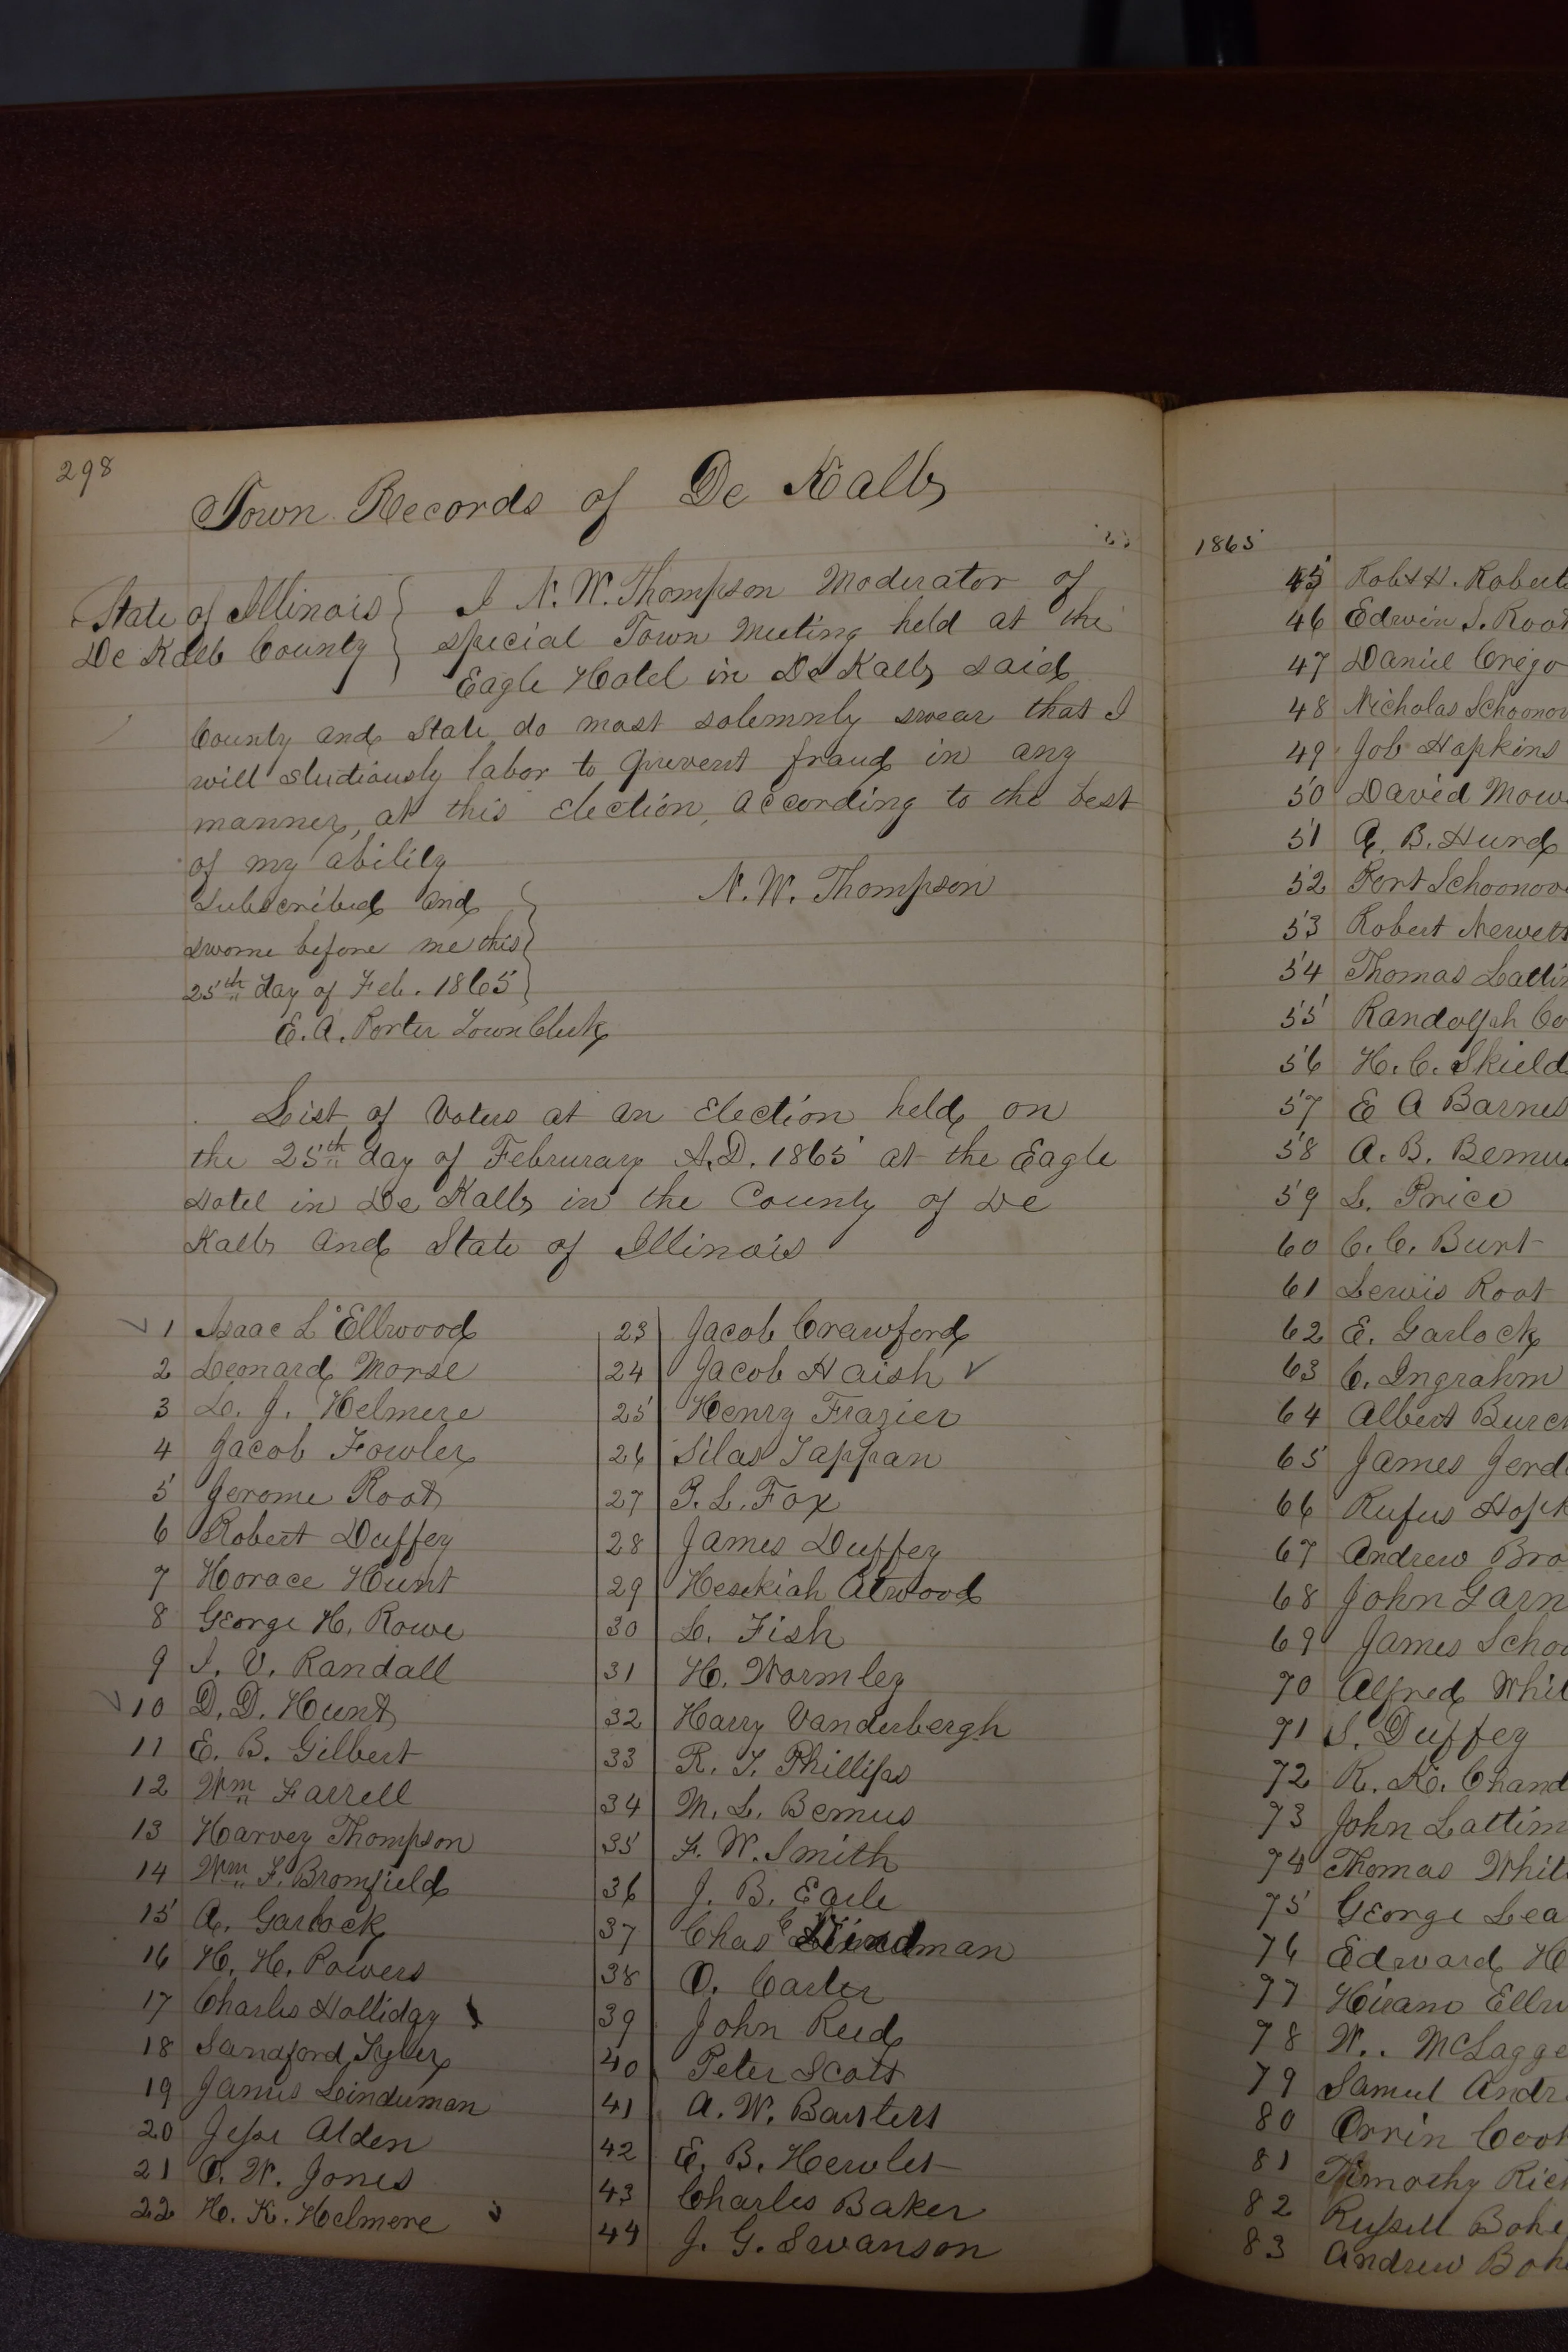 298
Town Records of De Kalb
State of Illinois } I N. W. Thompson Moderator of
De Kalb County } special Town Meeting held at the
Eagle Hotel in De Kalb said
County and State do most solemnly swear that I
will studiously labor to prevent fraud in any
manner, at this election, according to the best
of my ability
Subscribed and
sworne before me this
25th day of Feb. 1865
N. W. Thompson
E. A. Porter Town Clerk
List of Voters at an Election held on
the 25th day of Februrary A.D. 1865 at the Eagle
Hotel in De Kalb in the County of De
Kalb and State of Illinois
1 Isaac L Ellwood
2 Leonard Morse
3 L. J. Helmere
4 Jacob Fowler
5 Jerome Root
6 Robert Duffey
7 Horace Hunt
8 George H. Rowe
9 I. V. Randall
10 D. D. Hunt
11 E. B. Gilbert
12 Wm Farrell
13 Harvey Thompson
14 Wm F. Bromfield
15 A. Garlock
16 H. H. Powers
17 Charles Holliday
18 Sandford Tyler
19 James Linderman
20 Jesse Alden
21 O. W. Jones
22 H. K. Helmere
23 Jacob Crawford
24 Jacob Haish
25 Henry Frazier
26 Silas Tappan
27 P. L. Fox
28 James Duffey
29 Hesekiah Atwood
30 L. Fish
31 H. Wormley
32 Harry Vanderbergh
33 R. T. Phillips
34 M. L. Bemus
35 F. W. Smith
36 J. B. Earle
37 Chas
38 O. Carter
39 John Reed
40 Peter Scott
41 A. W. Baisters
42 E. B. Hewlet
43 Charles Baker
44 J. G. Swanson
1865
45 Robt H. Roberts
46 Edwin S. Root
47 Daniel Crego
48 Nicholas Schoonov
49 Job Hopkins
50 David Mow
51 A. B. Hurd
52 Port Schoonov
53 Robert Newett
54 Thomas Lattin
55 Randolph Co
56 H. C. Skield
57 E A Barnes
58 A. B. Bemus
59 L. Price
60 C. C. Burt
61 Lewis Root
62 E. Garlock
63 C. Ingrahm
64 Albert Burch
65 James Jerd
66 Rufus Hopk
67 Andrew Bro
68 John Garn
69 James Schoo
70 Alfred Whit
71 S. Duffey
72 R. K. Chand
73 John Lattim
74 Thomas Whit
75 George Lea
76 Edward H
77 Hiram Ellw
78 W. McLagge
79 Samuel Andr
80 Orrin Cook
81 Timothy Rich
82 Russell Bohe
83 Andrew Boh